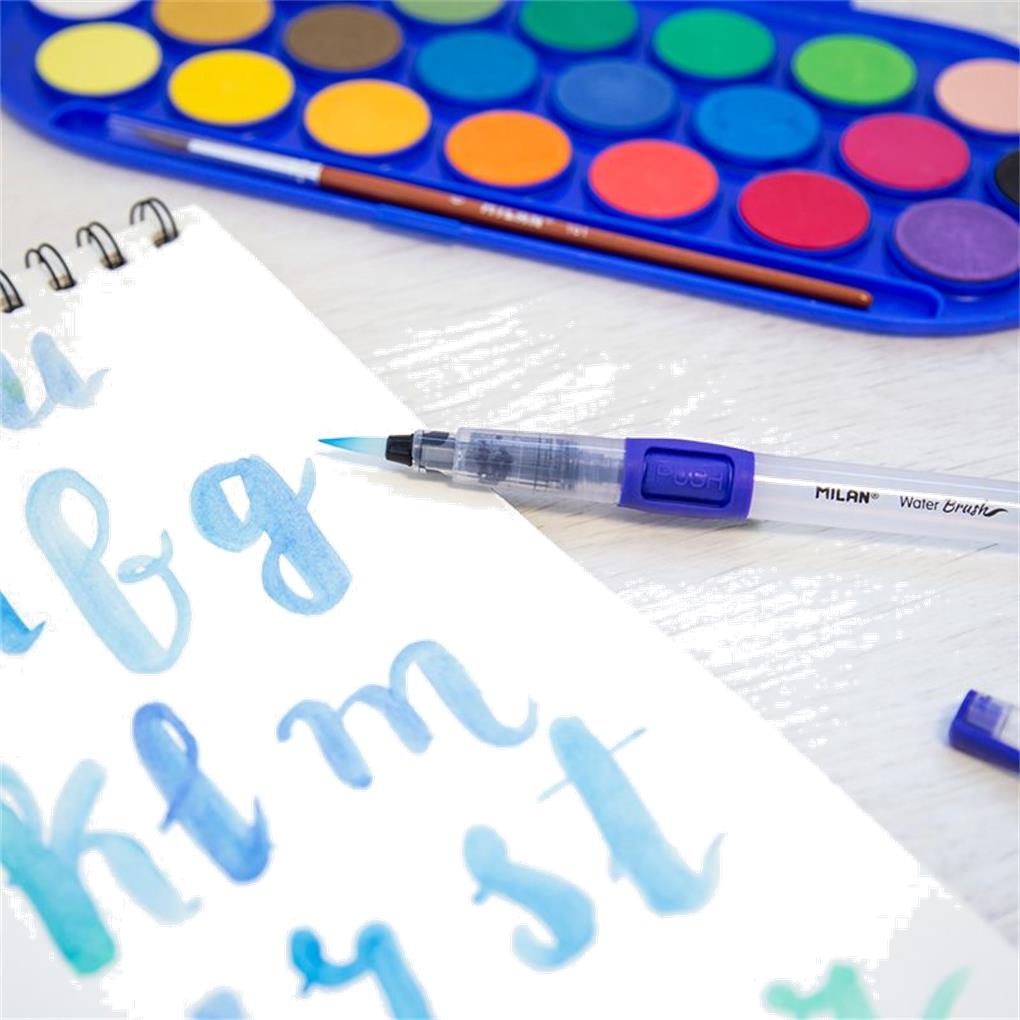 MILAN 101
u
PUSH
MILAN® Water Brush
b g
k l m
s t
y